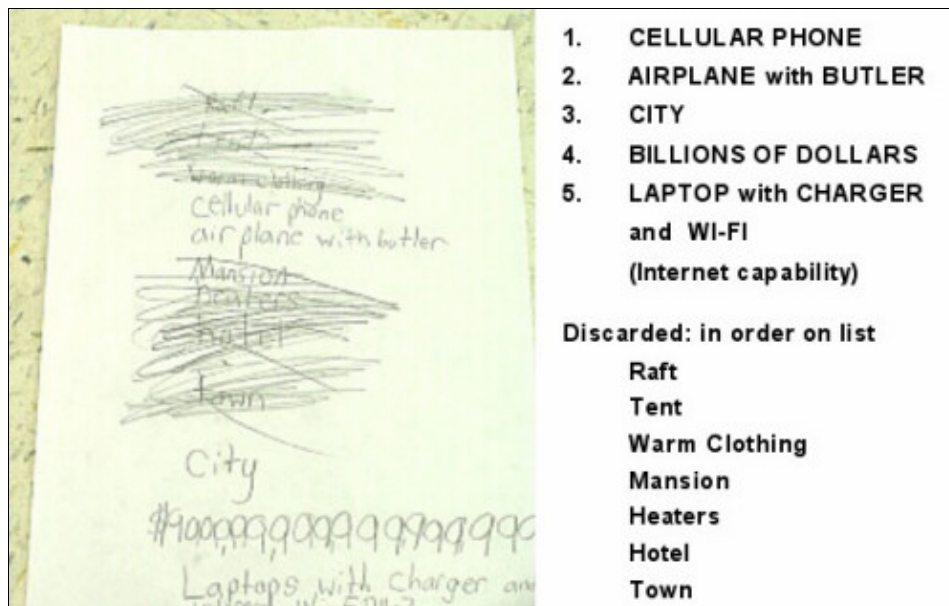 Raft
Tent
Warm clothing
cellular phone
air plane with butler
Mansion
heaters
hotel
town
City
Laptops with charger an
1. CELLULAR PHONE
2. AIRPLANE with BUTLER
3. CITY
4. BILLIONS OF DOLLARS
5. LAPTOP with CHARGER
and WI-FI
(Internet capability)
Discarded: in order on list
Raft
Tent
Warm Clothing
Mansion
Heaters
Hotel
Town